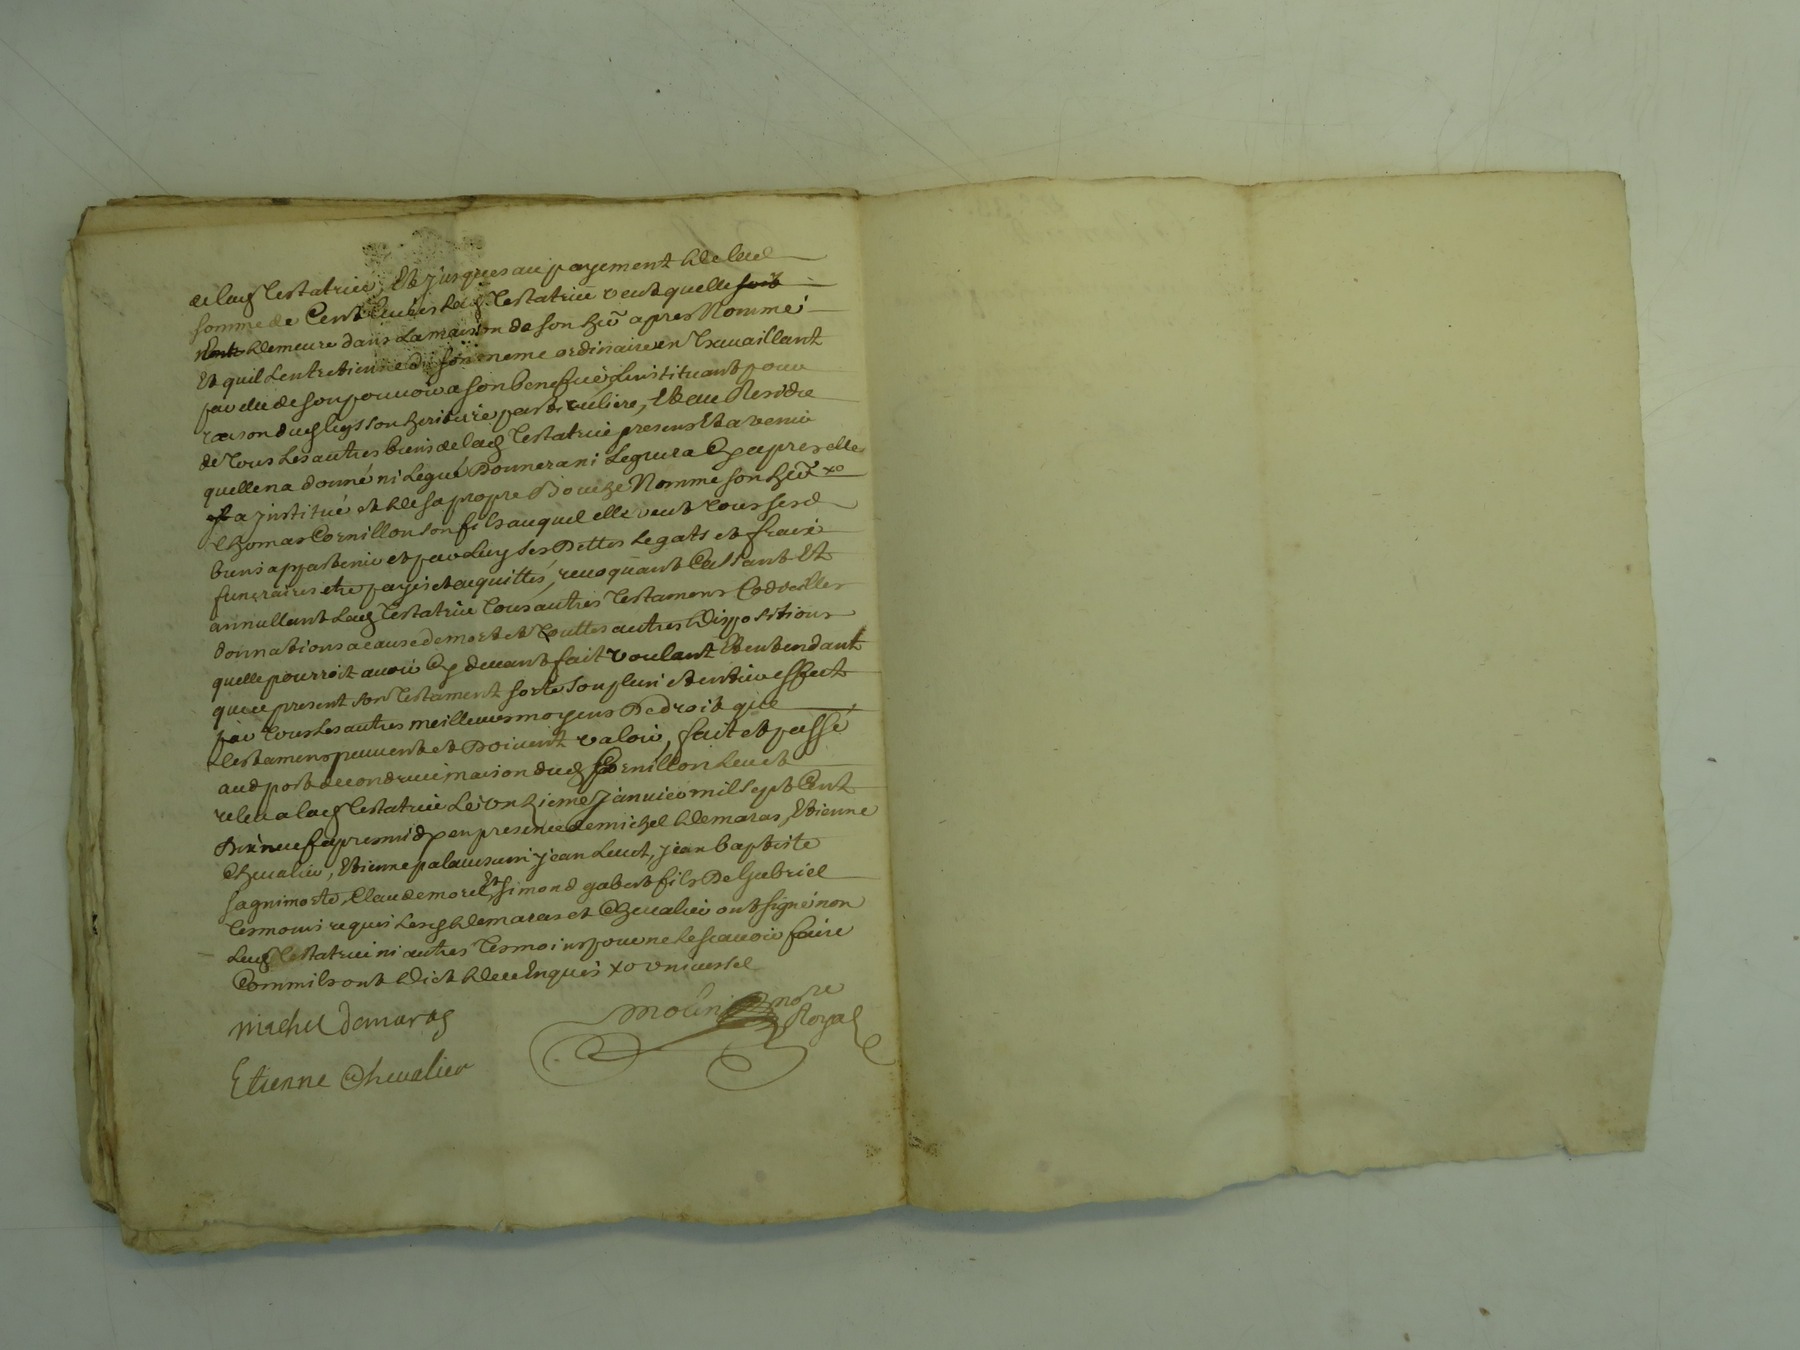 de lad Testatrice, Et jusques au payement de lad
somme de Cent livres lad Testatrice veut quelle soit
demeure dans La maison de son her apres Nommé
Et quil Lentretienne de son meme ordinaire en Travaillant
par elle de son pouvoir a son benefice, Linstituant pour
raison dud legs son heritiere particuliere, Et au Residu
de Tous Les autres biens de lad Testatrice presens Et avenir
quelle na donné ni Legué Donnera ni Leguera Cy apres elle
a institué et de sa propre Bouche Nommé son her xo
thomas Cornillon son fils auquel elle veut tous sesd
biens appartenir et par Luy ses Dettes Legats et fraix
funeraires etre payés et acquittés, revoquant Cassant Et
annullant Lad Testatrice tous autres Testamens Codicilles
donnations a cause de mort et Touttes autres dispositions
quelle pourroit avoir Cy devant fait voulant Et entendant
que ce present son Testament sorte son plein et entier effect
par Tous Les autres meilleurs moyens De droit que
Testamens peuvent et Doivent valoir, fait et passé
aud port de condrieu maison dud Cornillon Leu et
releu a lad Testatrice Le onzieme Janvier mil sept Cent
Dix neuf apres midy en presence de michel demaras, Etienne
Chevalier, Etienne jean Lent, jean baptiste
sagnimorte, Claude morel, Et simond gabert fils De Gabriel
Tesmoins requis Lesd demaras et Chevalier ont signé non
Lad Testatrice ni autres Tesmoins pour ne Le scavoir faire
Comm ils ont dict de ce Enquis xo universel
michel demaras
Molin nore
Royal
Etienne Chevalier